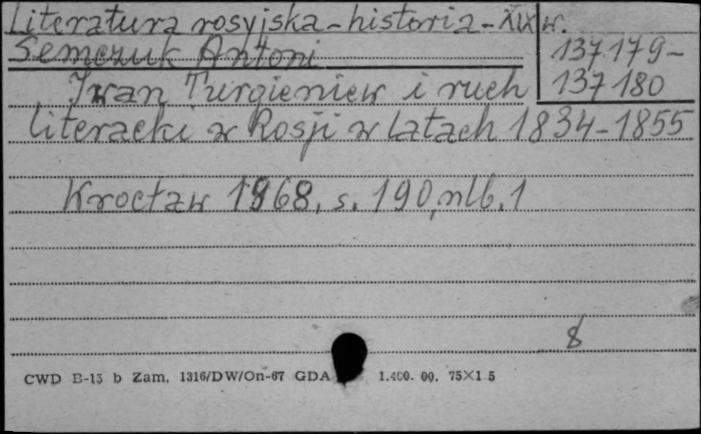 Literatura rosyjska - historia - XIX w.
Semczuk Antoni
137.179-
137.180
Iwan Turgieniew i ruch
literacki w Rosji w latach 1834-1855
Wrocław 1968, s. 190, nlb. 1
8
CWD B-15 b Zam. 1316/DW/On-67 GDA 1.400.00. 75×1 5